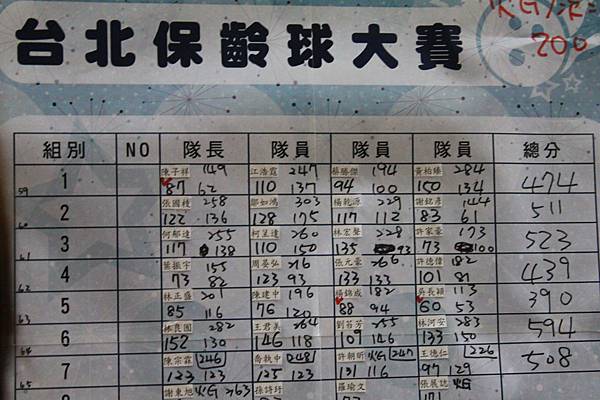 台北保齡球大賽
200
組別 NO 隊長 隊員 隊員 隊員 總分
59 1 陳子祥 149 江浩霆 247 蔡勝傑 194 黃柏臻 284 474
87 62 110 137 94 100 150 134
60 2 張國種 258 鄒如鴻 303 楊乾源 229 謝銘彥 144 511
122 136 128 175 117 112 83 61
61 3 何郁達 255 柯呈達 260 林宏聲 228 許家豪 173 523
117 138 110 150 135 93 73 100
62 4 葉振宇 155 周晏弘 216 張元豪 266 許德偉 182 439
73 82 123 93 133 133 101 81
63 5 林正盛 201 陳建中 196 楊錦成 182 吳長穎 113 390
85 116 76 120 88 94 60 53
64 6 林良國 282 王君美 264 劉芳 255 林河安 283 594
152 130 146 118 109 146 133 150
65 7 陳宗霖 246 喬執中 248 許朝昕 KG 247 王德仁 226 508
123 123 125 123 131 116 97 129
謝東旭 KG 263 孫詩玗 羅瑜文 張展誌 KG